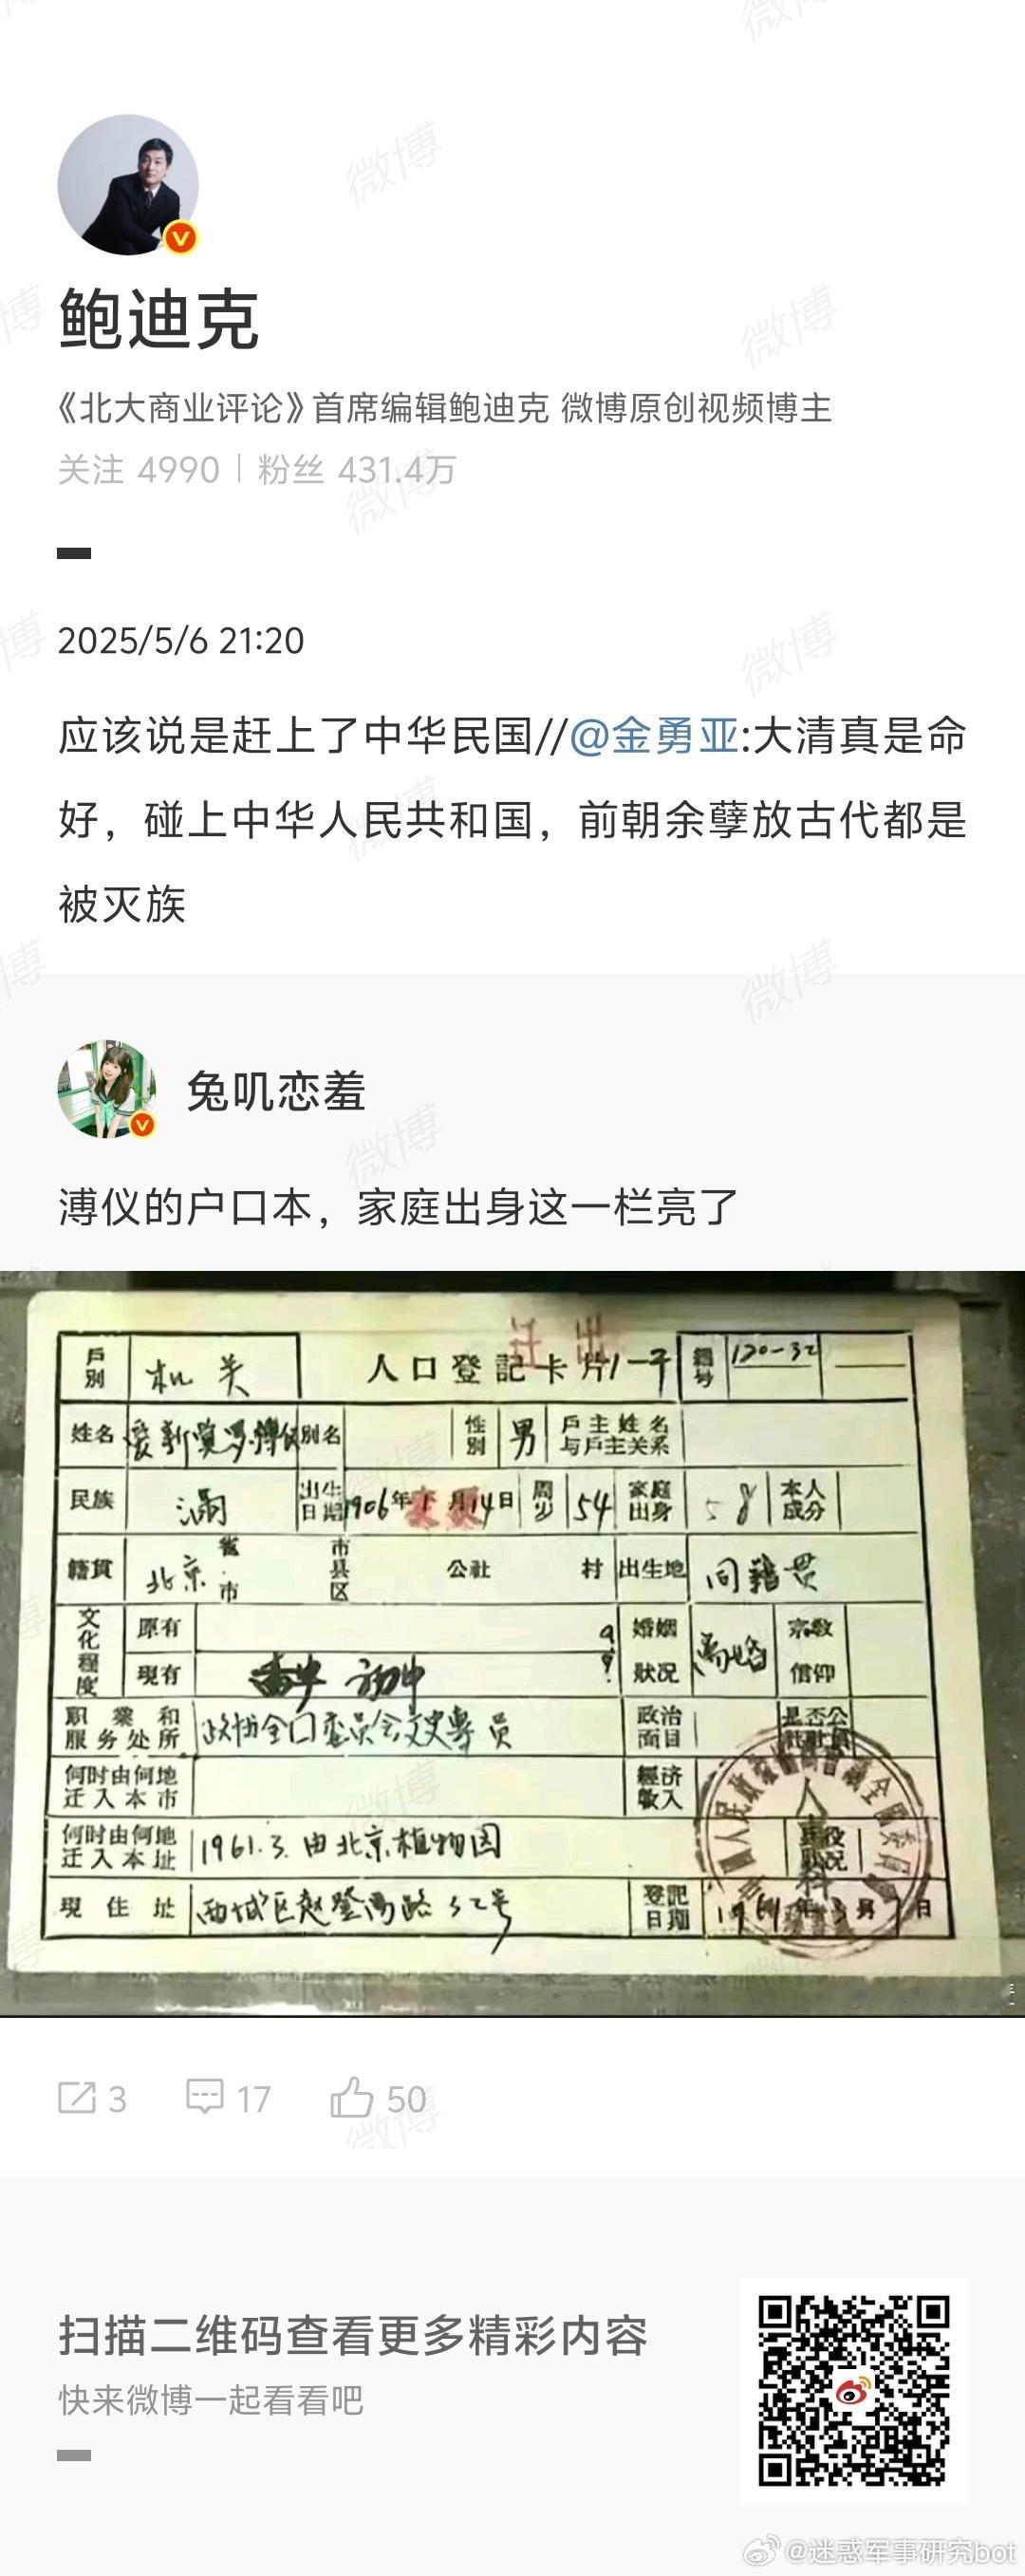 鲍迪克
《北大商业评论》首席编辑鲍迪克 微博原创视频博主
关注 4990 | 粉丝 431.4万
2025/5/6 21:20
应该说是赶上了中华民国//@金勇亚:大清真是命
好，碰上中华人民共和国，前朝余孽放古代都是
被灭族
兔叽恋羞
溥仪的户口本，家庭出身这一栏亮了
戶別 机关 人口登記卡片 编号 120-32
姓名 爱新觉罗溥仪 別名 性別 男 戶主姓名与戶主关系
民族 满 出生日期 1906年 月14日 周岁 54 家庭出身 本人成分
籍貫 北京 省市 市县区 公社 村 出生地 同籍贯
文化程度 原有 婚姻狀况 宗教信仰
現有 初中
职業和服务处所 政协全口委员会文史專员 政治面目
何时由何地迁入本市 經济收入
何时由何地迁入本址 1961.3.由北京植物园
現住址 西城区赵登禹路32号 登記日期 1961年3月 日
3 17 50
扫描二维码查看更多精彩内容
快来微博一起看看吧
@迷惑军事研究bot
微博